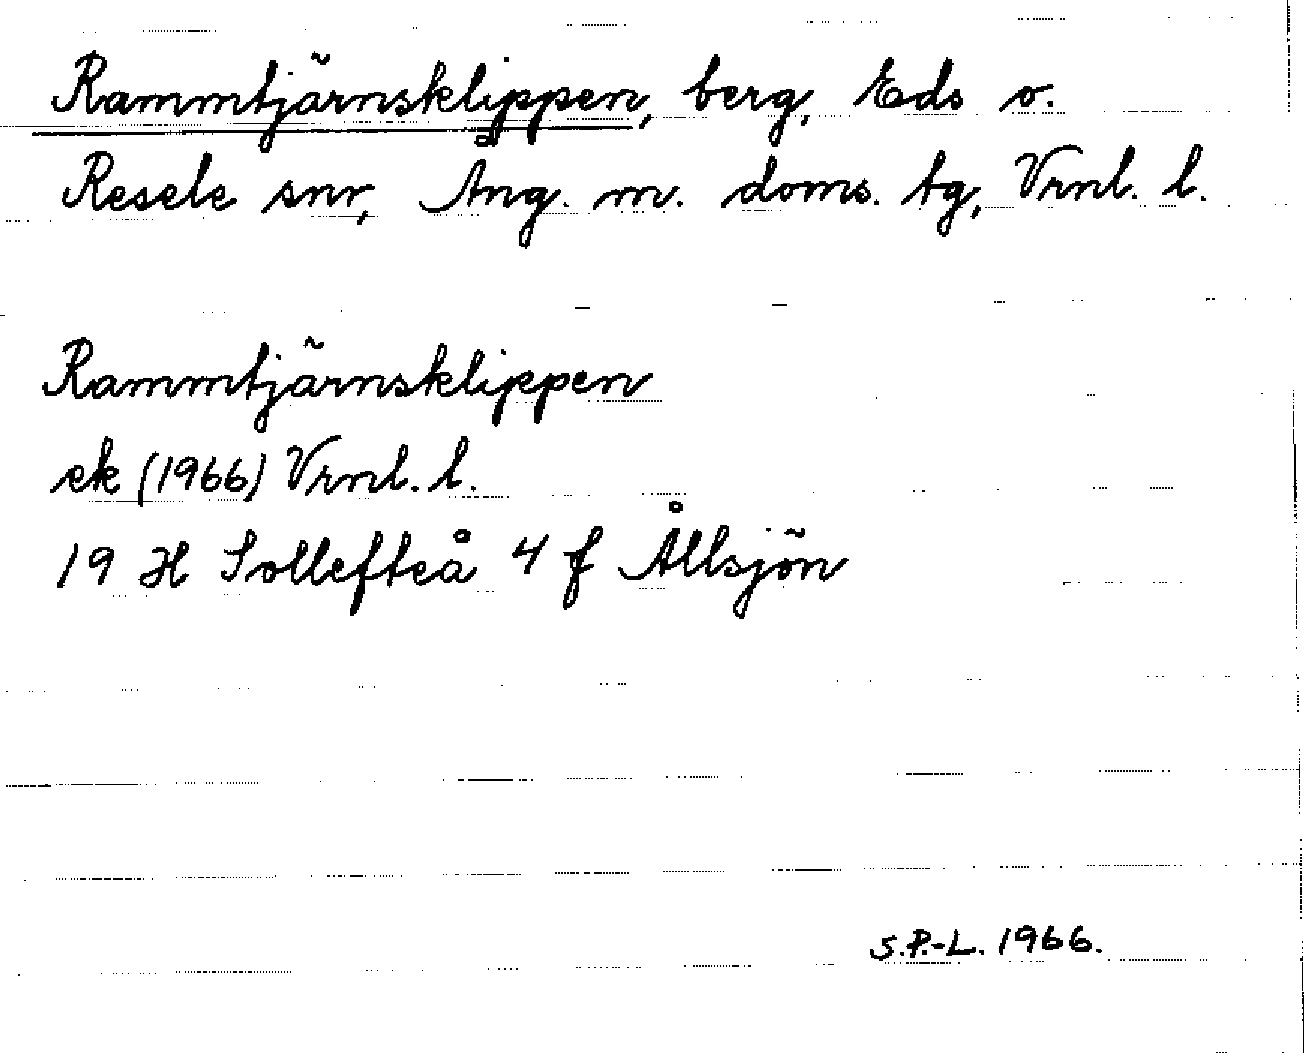 Rammtjärnsklippen, berg, Eds o.
Resele snr, Ång. m. doms. tg, Vrnl. l.
Rammtjärnsklippen
ek (1966) Vrnl. l.
19 H Sollefteå 4 f Ållsjön
S.P.-L. 1966.